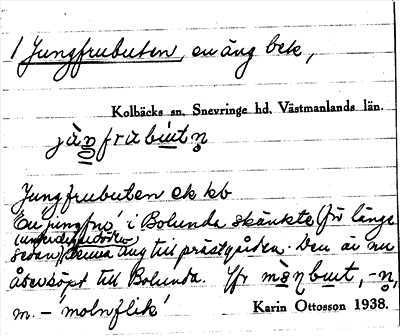 1 Jungfrubuten, en äng bek,
Kolbäcks sn. Snevringe hd. Västmanlands län.
Jungfrubuten ek kb
En jungfru i Bolunda skänkte (för länge
sedan) denna äng till prästgården. Den är nu
återköpt till Bolunda. Jfr
m. – 'molnflik'
Karin Ottosson 1938.